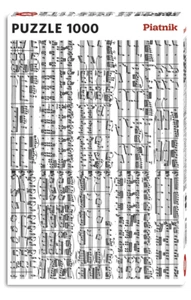 PUZZLE 1000 Piatnik